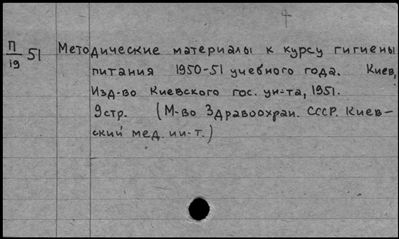 П/19 51 Методические материалы к курсу гигиены
питания 1950-51 учебного года. Киев,
Изд-во Киевского гос. ун-та, 1951.
9стр. (М-во Здравоохран. СССР. Киев-
ский мед. ин-т.)